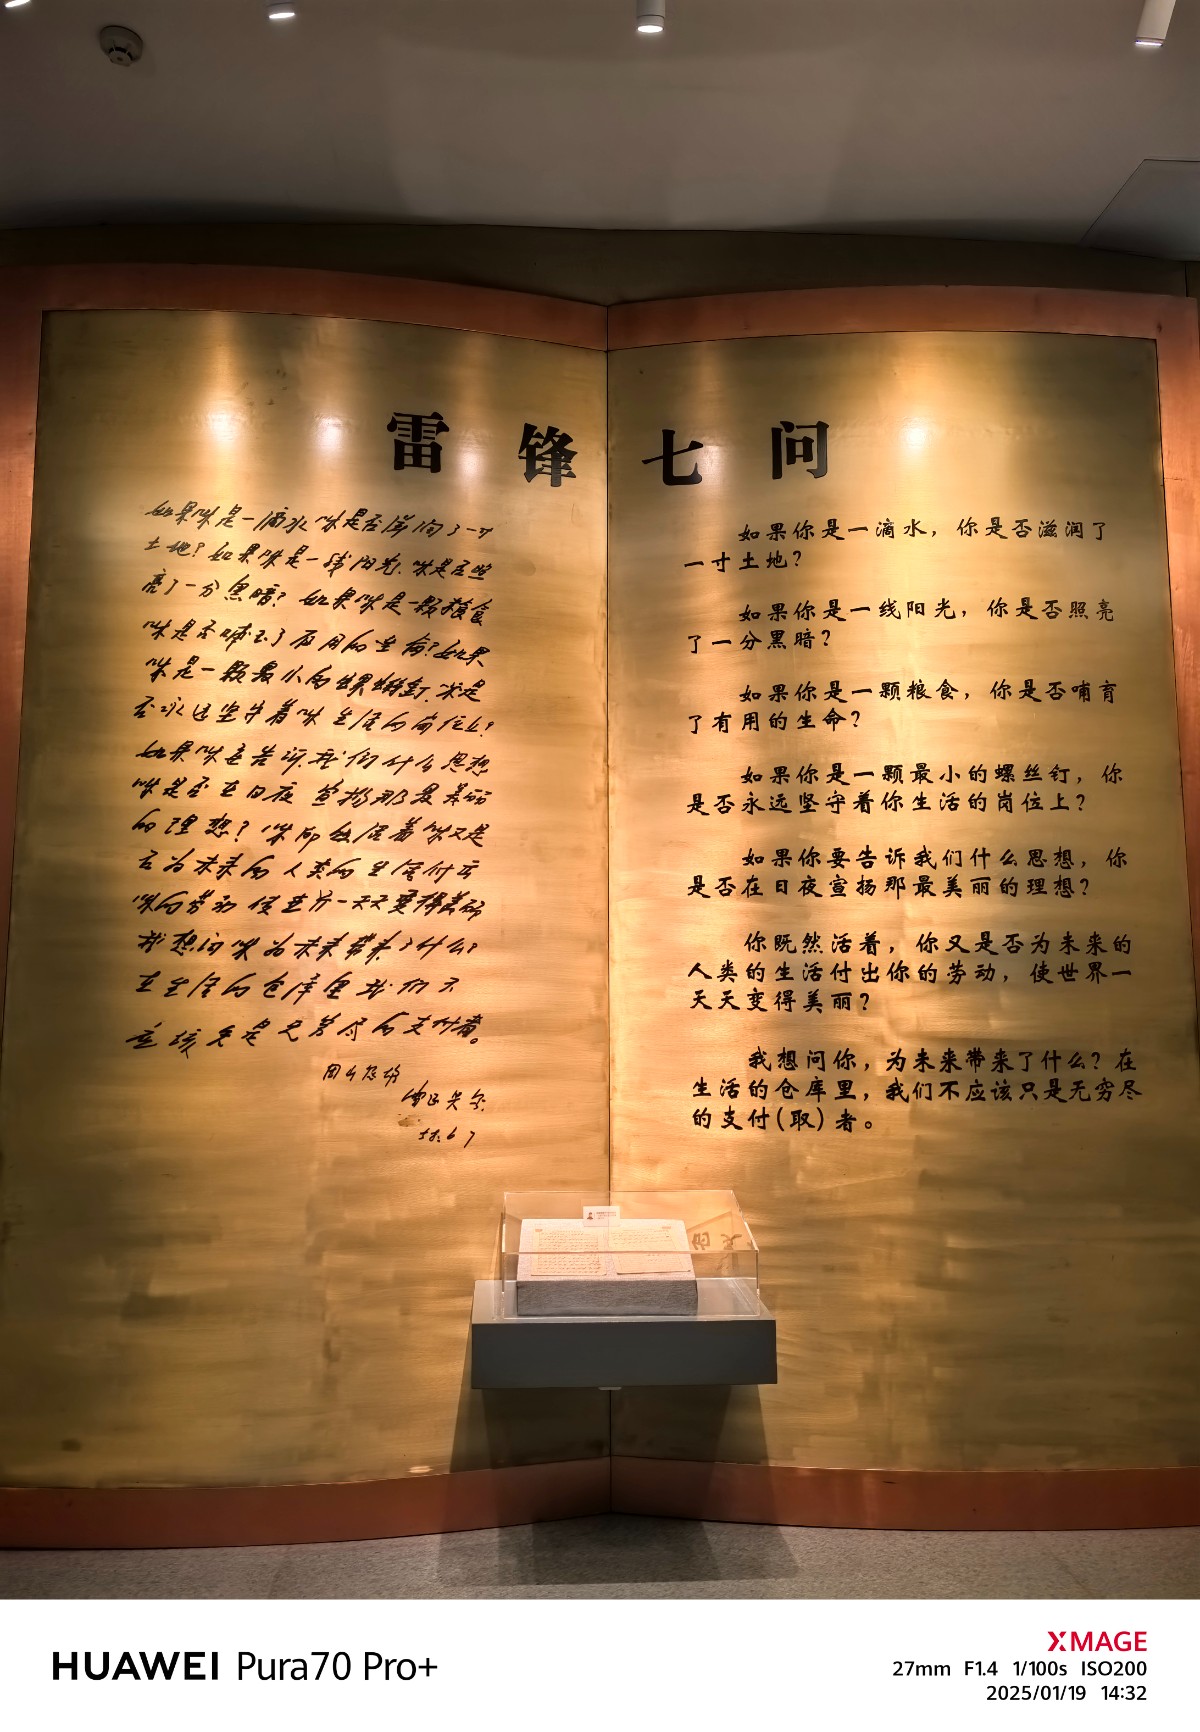 雷锋七问
如果你是一滴水你是否滋润了一寸
土地?如果你是一线阳光.你是否照
亮了一分黑暗?如果你是一颗粮食
你是否哺育了有用的生命?如果
你是一颗最小的螺丝钉.你是
否永远坚守着你生活的岗位上?
如果你要告诉我们什么思想
你是否在日夜宣扬那最美丽
的理想?你既然活着你又是
否为未来的人类的生活付出
你的劳动 使世界一天天变得美丽
我想问你为未来带来了什么?
在生活的仓库里我们不
应该只是无穷尽的支付者。
58.6.7
如果你是一滴水，你是否滋润了
一寸土地？
如果你是一线阳光，你是否照亮
了一分黑暗？
如果你是一颗粮食，你是否哺育
了有用的生命？
如果你是一颗最小的螺丝钉，你
是否永远坚守着你生活的岗位上？
如果你要告诉我们什么思想，你
是否在日夜宣扬那最美丽的理想？
你既然活着，你又是否为未来的
人类的生活付出你的劳动，使世界一
天天变得美丽？
我想问你，为未来带来了什么？在
生活的仓库里，我们不应该只是无穷尽
的支付(取)者。
HUAWEI Pura70 Pro+
XMAGE
27mm F1.4 1/100s ISO200
2025/01/19 14:32